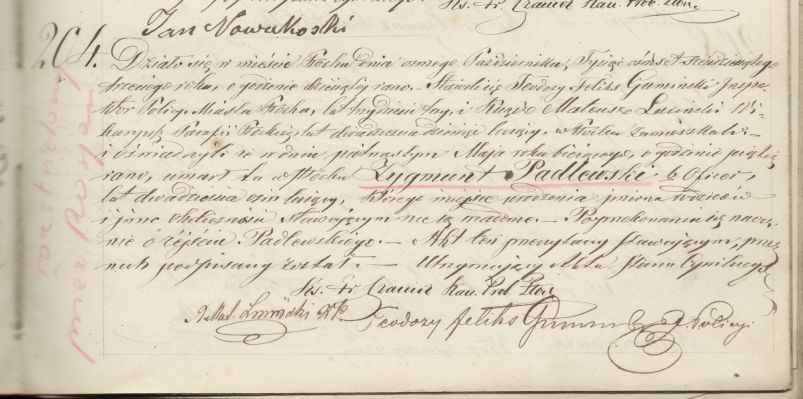 Jan Nowakoski
204. Działo się w mieście Płocku dnia ósmego Października, Tysiąc ośmset sześćdziesiątego
trzeciego roku, o godzinie dziewiątej rano. — Stawili się Teodory Feliks Gumiński Inspe-
któr Policyi Miasta Płocka, lat trzydzieści i Ksiądz Mateusz
Parafii lat dwadzieścia dziewięć liczący, w Płocku zamieszkali —
i oświadczyli że w dniu piętnastym Maja roku bieżącego, o godzinie piątej
rano, umarł tu w Płocku Zygmunt Padlewski b. Oficer,
lat dwadzieścia ośm liczący, którego miejsce urodzenia, imiona rodziców
i inne okoliczności stawającym nie są wiadome. — Po przekonaniu się naocz-
nie o zejściu Padlewskiego. — Akt ten przeczytany stawającym, przez
nich podpisany został. — Utrzymujący Akta Stanu Cywilnego
Ks. Kan. Prob. Płoc.
X. Mat. Teodory Feliks
rozstrzelony
przez Rosyan